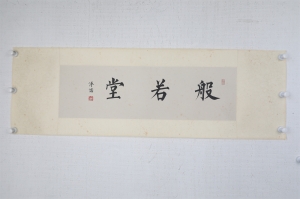 般若堂